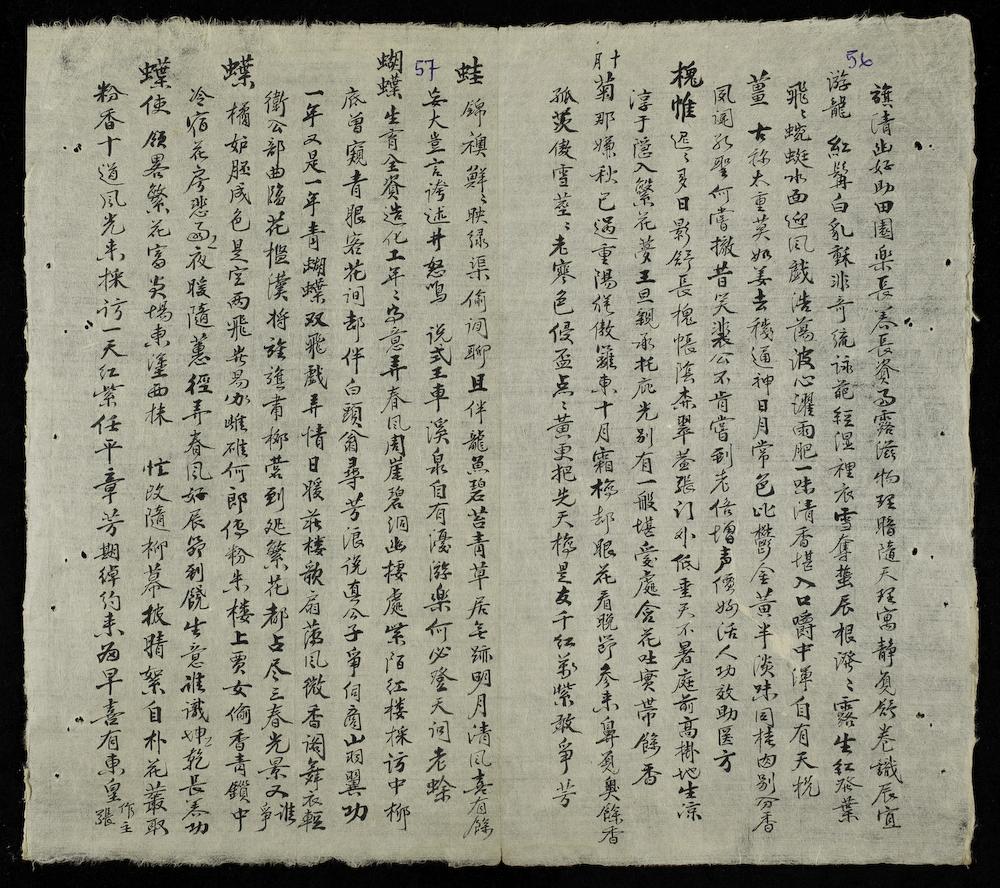 56
旗清幽好助田園樂長春長資雨露滋物理暗隨天理寓靜觀舒卷識辰宜
游龍 紅髯白亂蘇非奇統詠葩經濕裡衣雪奪蟄辰根潑々露生紅發葉
飛々蜿蜒水面迎風戲浩蕩波心濯雨肥一味清香堪入口嚼中渾自有天机
薑 古称太重莫如姜去穢通神日月常色比鬱金黃半淡味同桂肉別分香
風聞孔聖何嘗撤昔笑裴公不肯嘗到老倍增声價好活人功效助医方
槐帷 遲々多日影舒長槐帳陰森翠蓋張门外低垂天不暑庭前高掛地生凉
淳于隱入繁花夢王旦親承托庇光別有一般堪愛處含花吐實帶餘香
十月菊 那嫌秋已過重陽傲籬東十月霜梅却眼花看晚節參來鼻覓臭餘香
孤英傲雪莖々老寒色侵盃点々黃更把先天梅是友千紅萬紫敢爭芳
57
蛙 錦襖鮮々映绿渠偷闲聊且伴龍魚碧苔青草居無跡明月清風喜有餘
妄大豈言誇述井怒鳴説式王車溪泉自有優游樂何必登天问老蜍
蝴蝶 生育全資造化工年々留意弄春風周崖碧洞幽棲處紫陌红楼採訪中柳
底曾窺青眼客花间却伴白頭翁尋芳浪说真公子爭伺商山羽翼功
一年又是一年青蝴蝶双飛戲弄情日暖莊楼歌扇蕩風微香閣舞衣輕
衛公部曲臨花檻漢将旌旗肅柳營到処繁花都占尽三春光景又誰爭
蝶 橘妒胚成色是空两飛豈易办雌雄何郎傅粉朱楼上賈女偷香青鎖中
冷宿花房悲雨夜暖隨蕙徑弄春風好辰節到饒生意誰識坤乾長养功
蝶使 領畧繁花富貴場東塗西抹忙改隨柳幕披晴絮自朴花叢取
粉香十道風光来採访一天红紫任平章芳期綽約来為早喜有東皇作主張